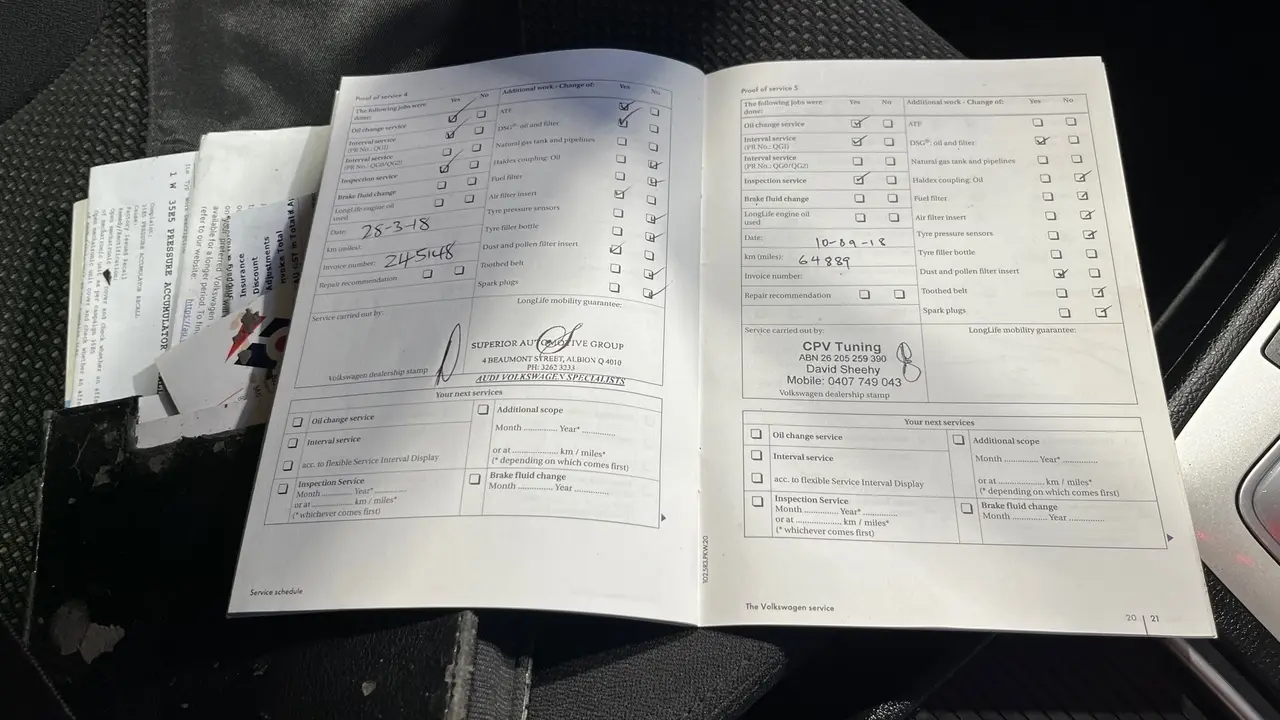 Proof of service 4
The following jobs were done: Yes No
Additional work - Change of: Yes No
Oil change service
Interval service
(PR No.: QG1)
Interval service
(PR No.: QG0/QG2)
Inspection service
Brake fluid change
LongLife engine oil used
Date: 28-3-18
km (miles): 245148
Invoice number:
Repair recommendation
ATF
DSG®: oil and filter
Natural gas tank and pipelines
Haldex coupling: Oil
Fuel filter
Air filter insert
Tyre pressure sensors
Tyre filler bottle
Dust and pollen filter insert
Toothed belt
Spark plugs
Service carried out by:
LongLife mobility guarantee:
SUPERIOR AUTOMOTIVE GROUP
4 BEAUMONT STREET, ALBION Q 4010
PH: 3262 3233
AUDI VOLKSWAGEN SPECIALISTS
Volkswagen dealership stamp
Your next services
Oil change service
Interval service
acc. to flexible Service Interval Display
Inspection Service
Month ........... Year* ...........
or at ........... km / miles*
(* whichever comes first)
Additional scope
Month .............. Year* ..............
or at .................... km / miles*
(* depending on which comes first)
Brake fluid change
Month ............ Year ..............
Service schedule
Proof of service 5
The following jobs were done: Yes No
Additional work - Change of: Yes No
Oil change service
Interval service
(PR No.: QG1)
Interval service
(PR No.: QG0/QG2)
Inspection service
Brake fluid change
LongLife engine oil used
Date: 10-09-18
km (miles): 64889
Invoice number:
Repair recommendation
ATF
DSG®: oil and filter
Natural gas tank and pipelines
Haldex coupling: Oil
Fuel filter
Air filter insert
Tyre pressure sensors
Tyre filler bottle
Dust and pollen filter insert
Toothed belt
Spark plugs
Service carried out by:
LongLife mobility guarantee:
CPV Tuning
ABN 26 205 259 390
David Sheehy
Mobile: 0407 749 043
Volkswagen dealership stamp
Your next services
Oil change service
Interval service
acc. to flexible Service Interval Display
Inspection Service
Month .............. Year* ..............
or at .................... km / miles*
(* whichever comes first)
Additional scope
Month .............. Year* ..............
or at .................... km / miles*
(* depending on which comes first)
Brake fluid change
Month ............ Year ..............
102.5R3.PKW.20
The Volkswagen service
20 | 21
35H5 PRESSURE ACCUMULATOR
Insurance
Discount
Adjustments